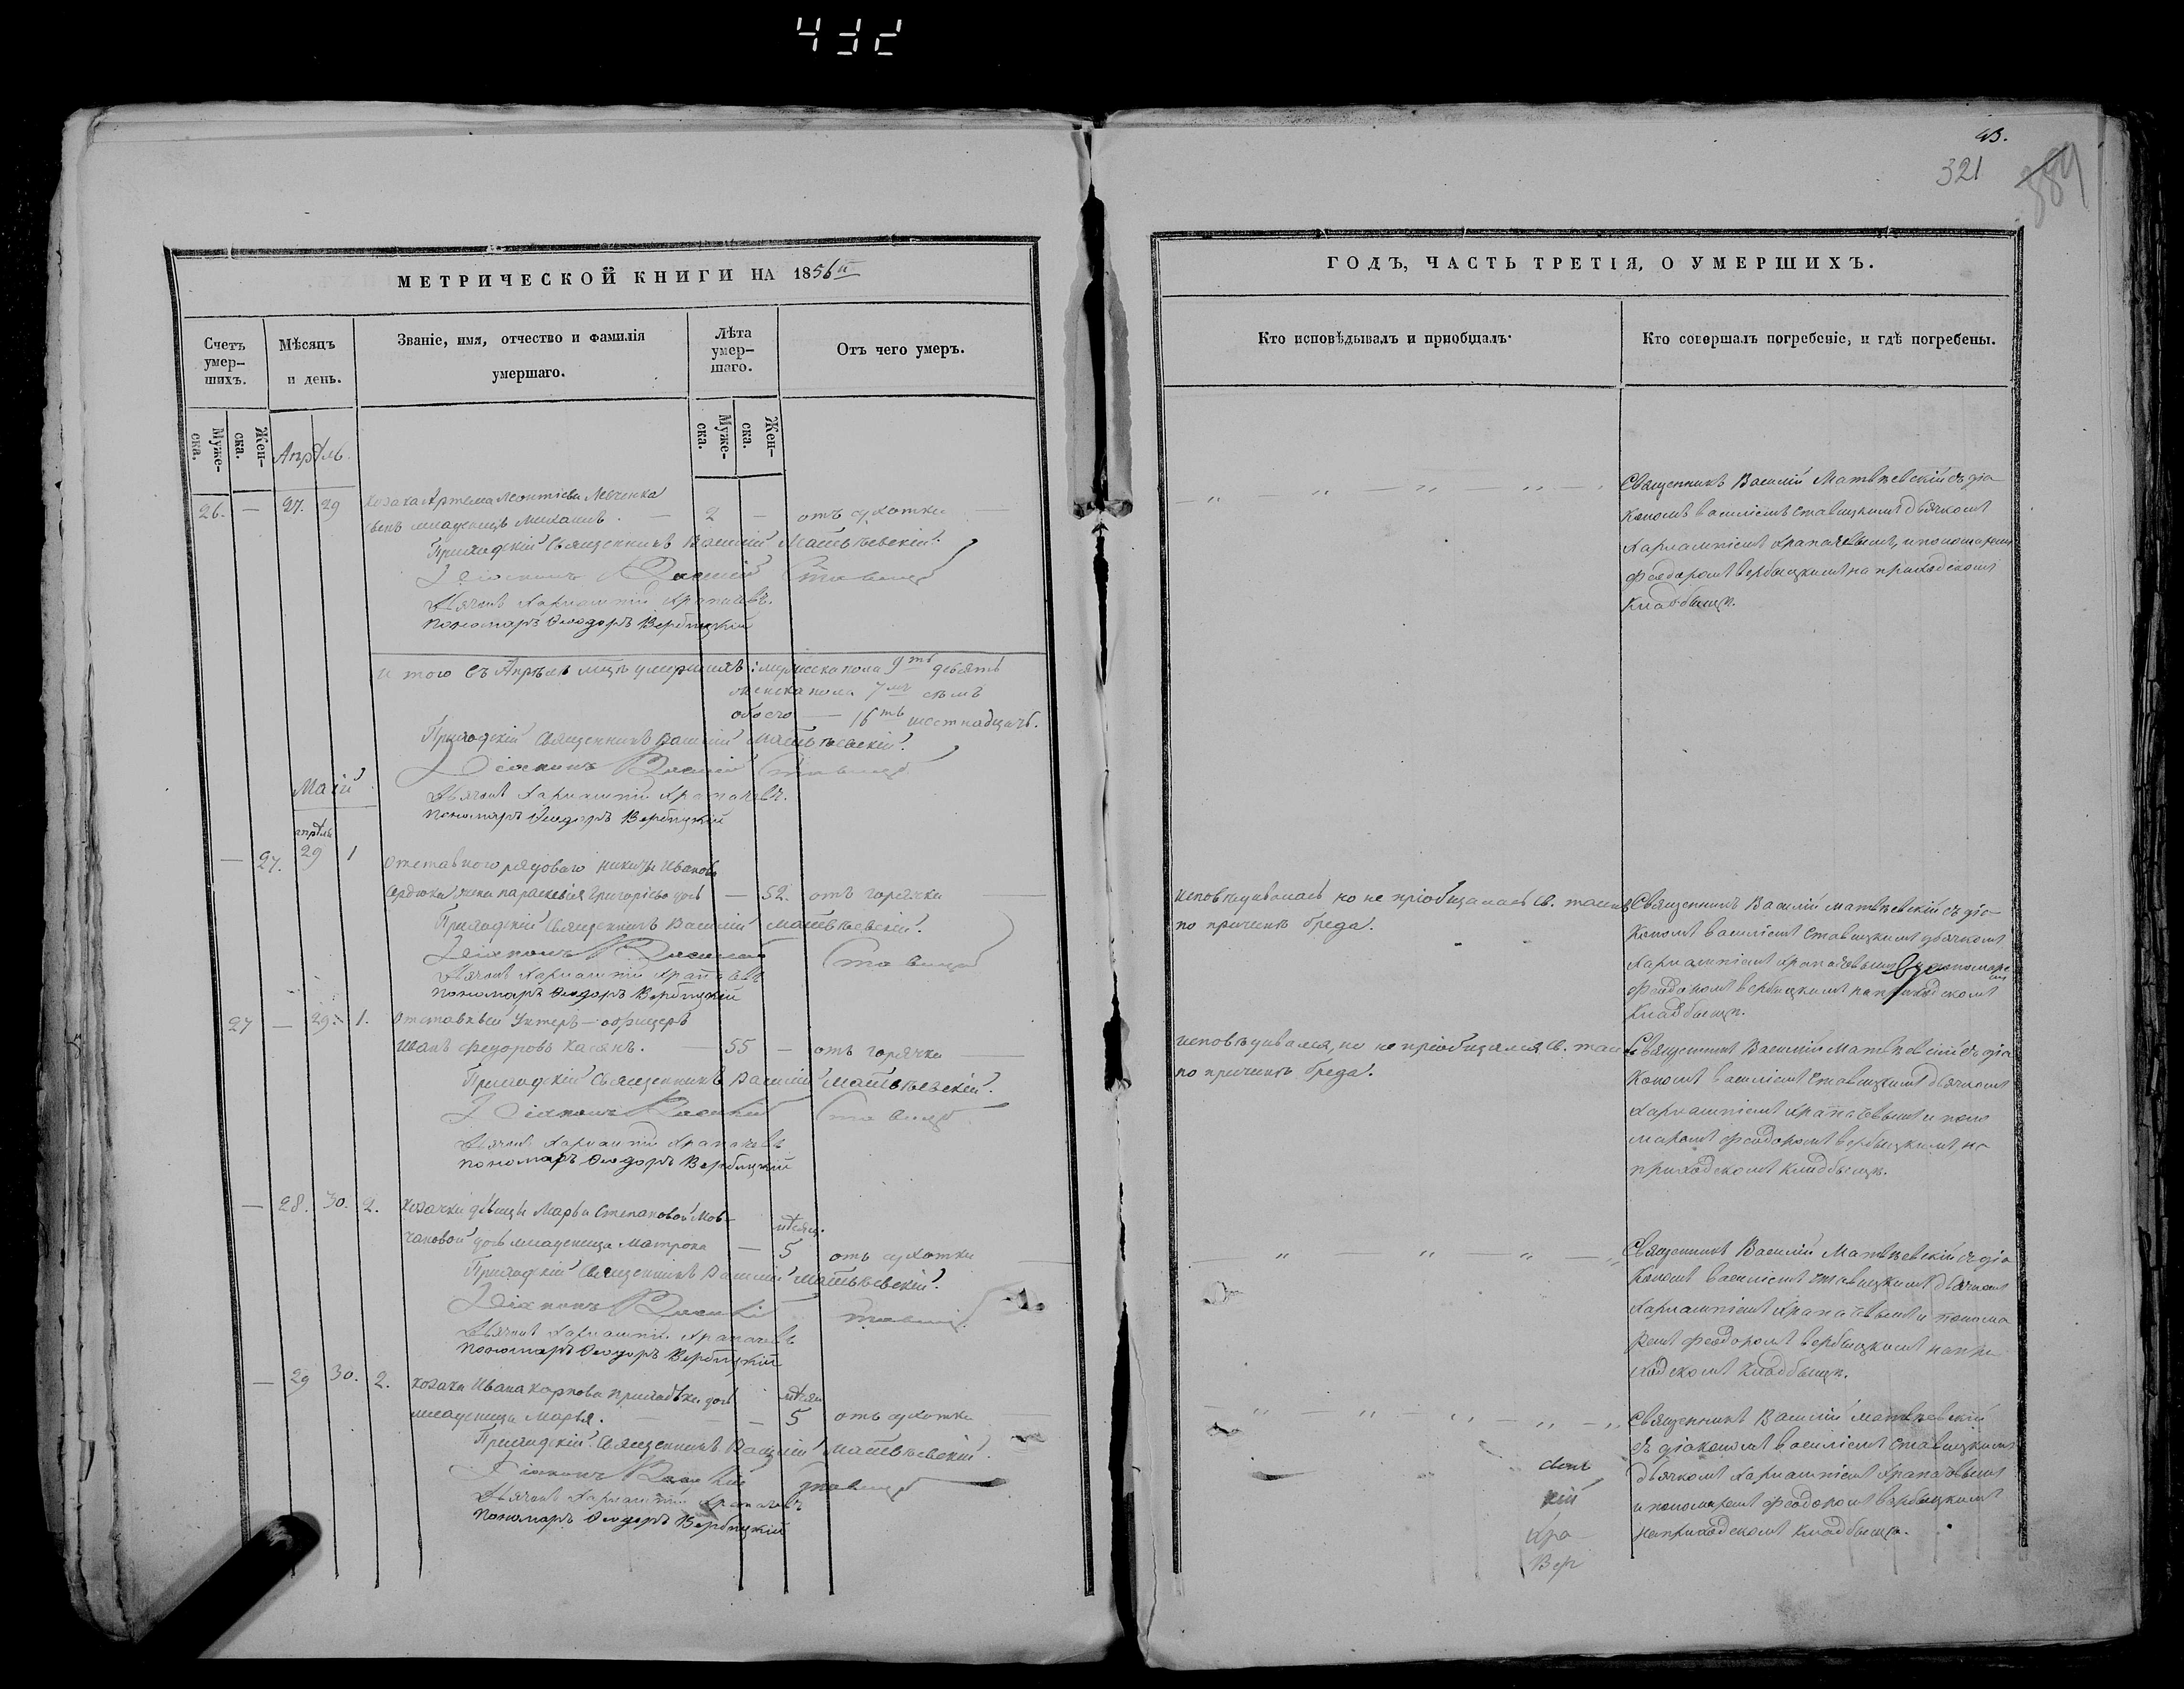 432
43.
321
884
МЕТРИЧЕСКОЙ КНИГИ НА 1856й
Счетъ умер-
шихъ.
Мѣсяцъ
и день.
Званіе, имя, отчество и фамилія
умершаго.
Лѣта
умер-
шаго.
Отъ чего умеръ.
Муже-
ска.
Жен-
ска.
Апрѣль.
Муже-
ска.
Жен-
ска.
26. — 27. 29 козака Артема Леонтіева
младенецъ Михаилъ. — 2 — отъ сухотки
Приходскій Священникъ Василій Матвѣевскій.
Діаконъ Василій Ставицкій
Дьячокъ Харлампій Храпачевъ.
Пономаръ Ѳеодоръ Вербицкій
И того въ Апрѣлѣ мцѣ умершихъ: мужеска пола 9ть девять
женска пола 7мь семь
обоего — 16ть шестнадцать.
Приходскій Священникъ Василій Матвѣевскій.
Діаконъ Василій Ставицкій
Май
Дьячокъ Харлампій Храпачевъ.
Пономаръ Ѳеодоръ Вербицкій
апрѣль
— 27. 29 1 Отставного рядового Никиты Иванова
Сердюка жена Параскевія Григорьева дочь — 52. отъ горячки
Приходскій Священникъ Василій Матвѣевскій.
Діаконъ Василій Ставицкій
Дьячокъ Харлампій Храпачевъ
Пономаръ Ѳеодоръ Вербицкій
27 — 29. 1. Отставный Унтеръ-офицеръ
Иванъ Федоровъ Касянъ. — 55 — отъ горячки
Приходскій Священникъ Василій Матвѣевскій.
Діаконъ Василій Ставицкій
Дьячокъ Харлампій Храпачевъ
Пономаръ Ѳеодоръ Вербицкій
— 28. 30. 2. Козачки дѣвицы Марьи Степановой Мов-
мѣсяц.
чановой дочь младеница Матрона — 5 отъ сухотки
Приходскій Священникъ Василій Матвѣевскій.
Діаконъ Василій Ставицкій
Дьячокъ Харлампій Храпачевъ
Пономаръ Ѳеодоръ Вербицкій
— 29 30. 2. козака Ивана Карпова дочь
младеница Марья. — 5 отъ сухотки
Приходскій Священникъ Василій Матвѣевскій
Діаконъ Василій Ставицкій
Дьячокъ Харлампій Храпачевъ
Пономаръ Ѳеодоръ Вербицкій
ГОДЪ, ЧАСТЬ ТРЕТІЯ, О УМЕРШИХЪ.
Кто исповѣдывалъ и пріобщалъ.
Кто совершалъ погребеніе, и гдѣ погребены.
Священникъ Василій Матвѣевскій съ діа-
кономъ Василіемъ Ставицкимъ дьячкомъ
Харлампіемъ Храпачевымъ, и пономаремъ
Феодоромъ Вербицкимъ на приходскомъ
кладбищѣ.
исповѣдывалась но не пріобщалась Св. таинъ
по причинѣ бреда.
Священникъ Василій Матвѣевскій съ діа-
кономъ Василіемъ Ставицкимъ дьячкомъ
Харлампіемъ Храпачевымъ пономаре
Феодоромъ Вербицкимъ на приходскомъ
кладбищѣ.
исповѣдывался, но не пріобщался Св. таинъ
по причинѣ бреда.
Священникъ Василій Матвѣевскій съ діа
кономъ Василіемъ Ставицкимъ дьячкомъ
Харлампіемъ Храпачевымъ и поно
маремъ Феодоромъ Вербицкимъ, на
приходскомъ кладбищѣ.
Священникъ Василій Матвѣевскій съ діа
кономъ Василіемъ Ставицкимъ дьячкомъ
Харлампіемъ Храпачевымъ и понома
ремъ Феодоромъ Вербицкимъ на при
ходскомъ кладбищѣ.
Священникъ Василій Матвѣевскій
съ діакономъ Василіемъ Ставицкимъ
дьячкомъ Харлампіемъ Храпачевымъ
и пономаремъ Феодоромъ Вербицкимъ
на приходскомъ кладбищѣ.
кій
Хра-
Вер